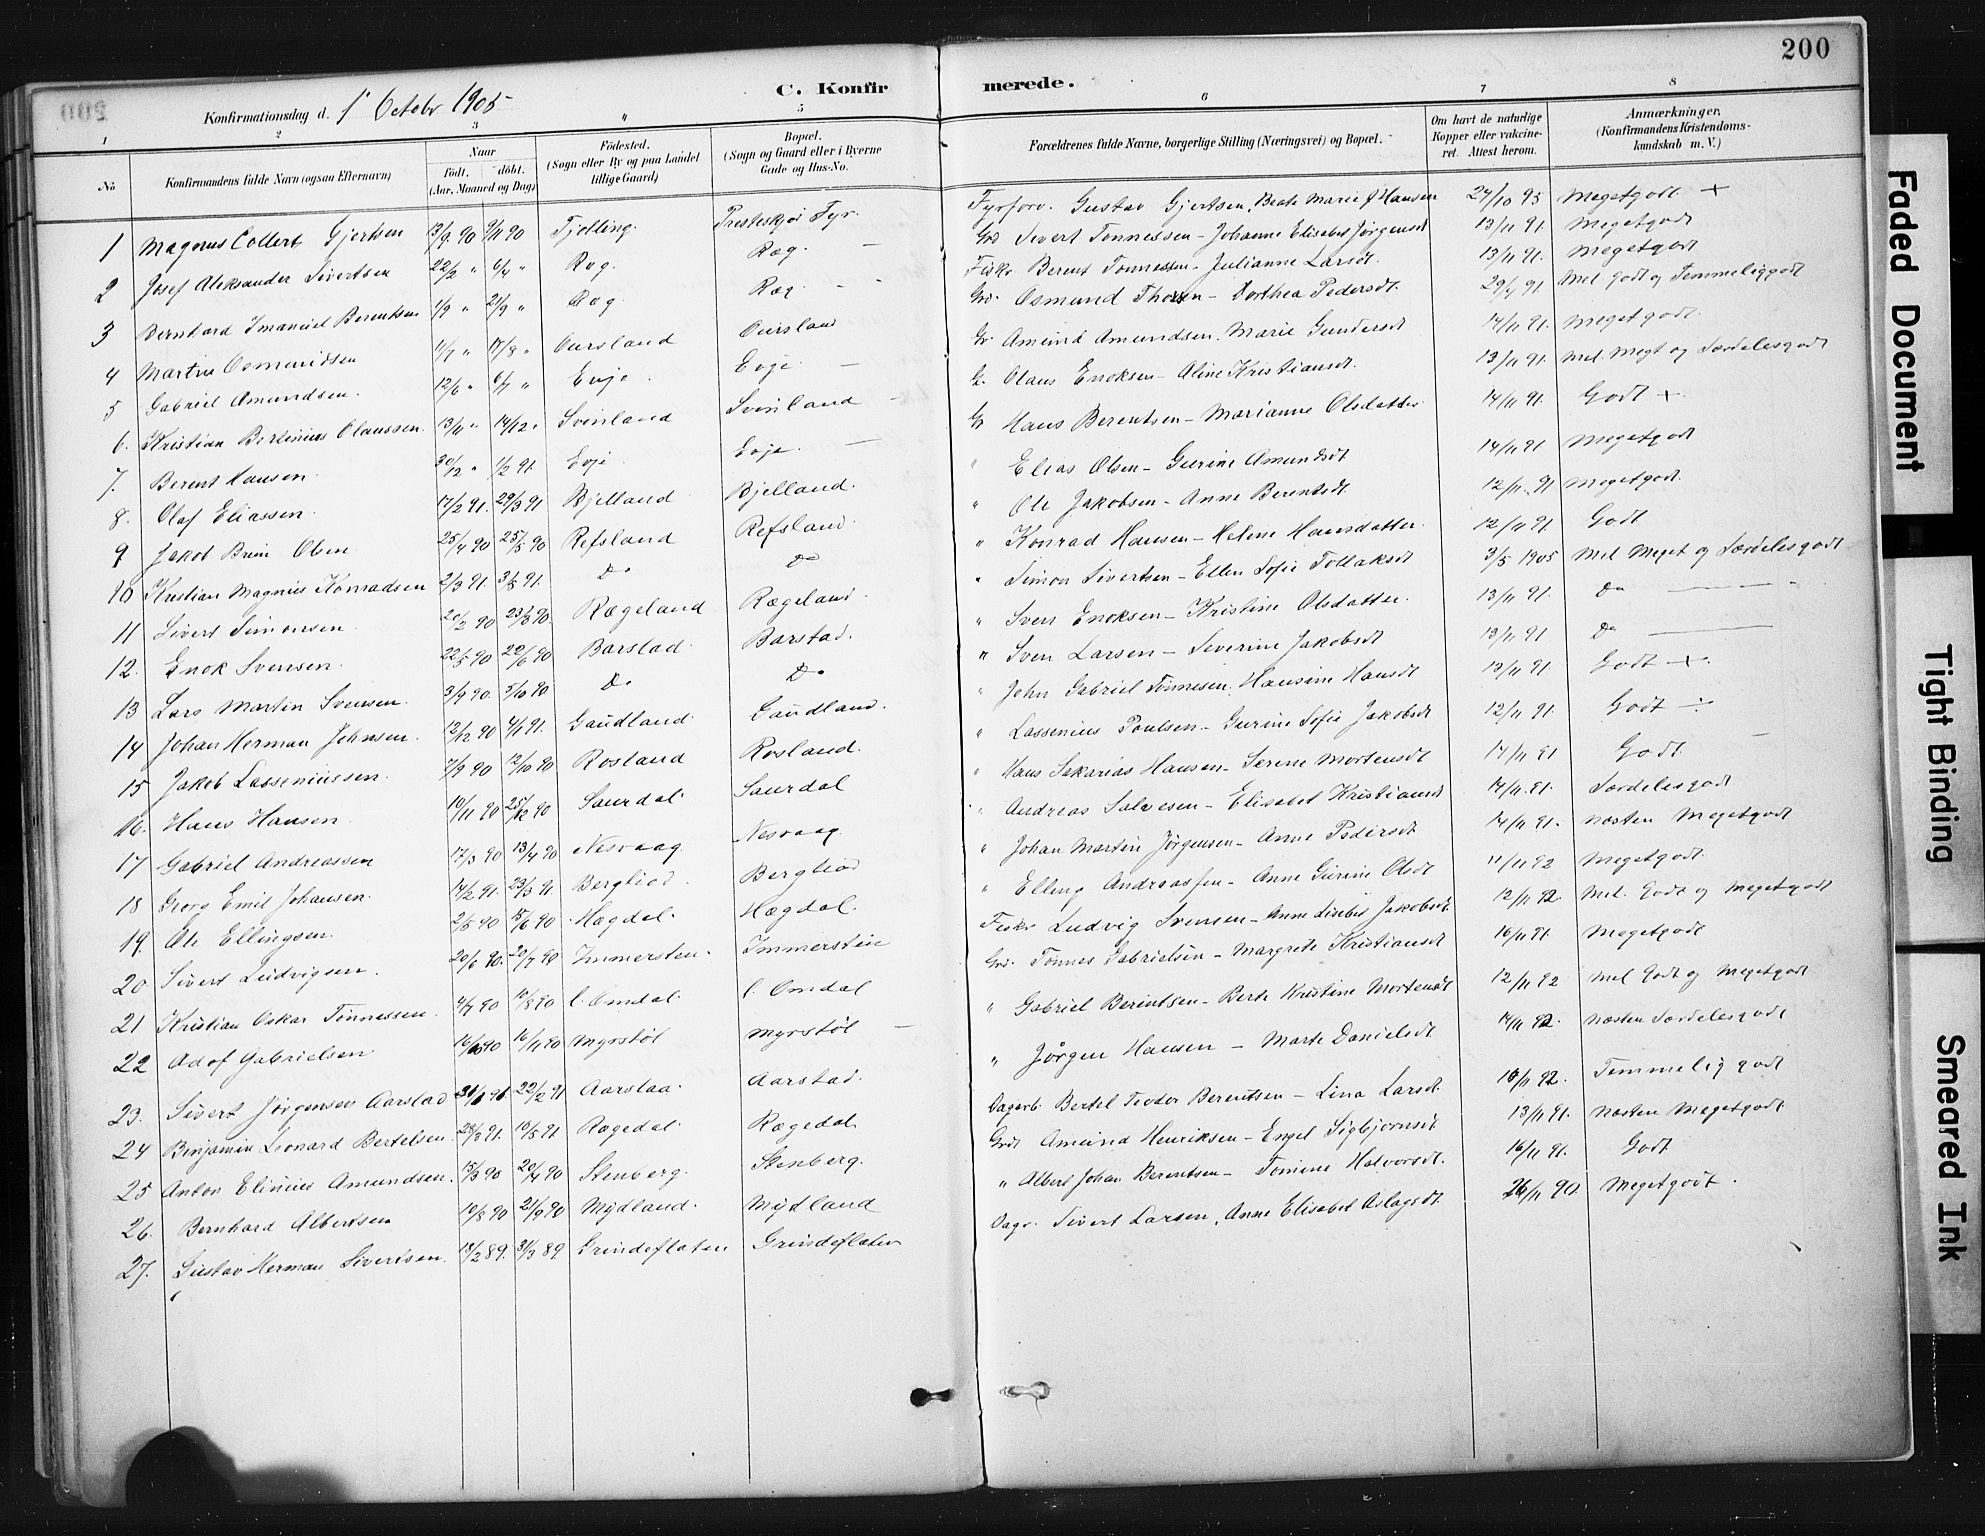 200
C. Konfirmerede.
Konfirmationsdag d. 1' October 1905
1 2 3 4 5 6 7 8
No
Konfirmandens fulde Navn (ogsaa Efternavn)
Naar
födt. döbt.
(Aar, Maaned og Dag)
Födested.
(Sogn eller By og paa Landet tillige Gaard)
Bopæl.
(Sogn og Gaard eller i Byerne Gade og Hus-No.
Forældrenes fulde Navne, borgerlige Stilling (Næringsvei) og Bopæl.
Om havt de naturlige Kopper eller vakcineret. Attest herom.
Anmærkninger.
(Konfirmandens Kristendomskundskab m. V.)
1 Magnus Collert Gjertsen 13/9 90 9/11 90 Tjölling. Presteskjær Fyr. Fyrforv. Gustav Gjertsen, Beate Marie J Hansen 24/10 95 Megetgodt +
2 Josef Aleksander Sivertsen 22/2 " 6/4 " Ræg. Ræg. — Grd Sivert Tönnessen - Johanne Elisabet Jörgensdt 13/11 91. Megetgodt
3 Bernhard Imanuel Berentsen 1/9 " 21/9 " Ræg Ræg - - Fiskr Berent Tönnessen - Julianne Larsdt. 13/11 91. Megetgodt
4 Martin Osmundsen 1/7 " 17/8 " Oursland Oursland Grd. Osmund Thorsen - Dorthea Pedersdt. 29/4 91. Mel. Godt og Temmeliggodt
5 Gabriel Amundsen. 12/6 " 6/7 " Evje. Evje — Gr. Amund Amundsen, Marie Gundersdt 14/11 91. Megetgodt
6. Kristian Bertinius Olaussen. 13/11 " 14/12 " Svinland Svinland - G. Olaus Enoksen - Aline Kristiansdt. 13/11 91. Mel. Megt og Særdelesgodt
7. Berent Hansen. 30/12 " 1/2 91. Evje. Evje. — Gr Hans Berentsen - Marianne Olsdatter 14/11 91. Godt +
8. Olaf Eliassen. 17/2 91. 29/3 91 Bjelland Bjelland. " Elias Olsen - Gurine Amundsdt 14/11 91 Megetgodt
9 Jakob Breni Olsen 25/4 90 25/5 90 Refsland Refsland. " Ole Jakobsen - Anne Berentsdt. 12/11 91 Megetgodt.
10 Kristian Magnus Konradsen 2/3 91. 3/5 91. Do Do " Konrad Hansen - Helene Hansdatter 12/11 91 Godt
11 Sivert Simonsen. 20/2 90 23/3 90. Rægeland Rægeland. " Simon Sivertsen - Ellen Sofie Tollaksdt 3/5 1905 Mel Meget og Særdelesgodt
12. Enok Svensen. 22/5 90 22/6 90 Barstad. Barstad. " Sven Enoksen - Kristine Olsdatter. 13/11 91. Do —
13 Lars Martin Svensen. 3/9 90. 5/10 90 Do Do " Sven Larsen - Severine Jakobsdt 13/11 91 Do —
14 Johan Herman Johnsen. 12/12 90 4/1 91. Gaudland. Gaudland. " John Gabriel Tönnesen, Hansine Hansdt 13/11 91. Godt +.
15 Jakob Lasseniussen. 7/9 90 12/10 90 Rosland Rosland. " Lassenius Poulsen - Gurine Sofie Jakobsdt 12/11 91. Godt ÷
16. Hans Hansen. 10/11 90 25/12 90 Saurdal. Saurdal " Hans Sakarias Hansen - Serene Mortensdt 14/11 91 Godt. —
17 Gabriel Andreassen 17/3 90 13/4 90 Nesvaag. Nesvaag. " Andreas Salvesen - Elisabet Kristiansdt 14/11 91. Særdelesgodt
18 Georg Emil Johansen. 14/2 91. 29/3 91 Bergliod. Bergliod " Johan Martin Jörgensen - Anne Pedersdt 14/11 91. næsten Megetgodt
19. Ole Ellingsen 2/5 90 15/6 90 Hægdal. Hægdal. " Elling Andreassen - Anne Gurine Olsdt 11/11 92 Megetgodt.
20 Sivert Ludvigsen. 20/6 90. 20/7 90 Immersten. Immerstein Fiskr Ludvig Svensen - Anne Lisebet Jakobsdt. 12/11 92. Mel. Godt og Megetgodt
21 Kristian Oskar Tönnessen. 4/7 90 17/8 90 l. Omdal. l. Omdal Grd. Tönnes Gabrielsen - Margrete Kristiansdt 16/11 91. Megetgodt
22 Adof Gabrielsen 16/10 90 16/11 90 Myrstöl Myrstöl — " Gabriel Berintsen - Berte Kristine Mortensdt 12/11 92 Mel Godt og Megetgodt
23. Sivert Jörgensen Aarstad 22/2 91 Aarstad. Aarstad. " Jörgen Hansen - Marte Danielsdt 14/11 92. næsten Særdelesgodt
24 Benjamin Leonard Bertelsen. 28/3 91. 10/5 91 Rægedal. Rægedal Dagarb. Bertel Teodor Berentsen - Lina Larsdt. 10/11 92. Temmelig godt
25 Anton Elinius Amundsen. 15/3 90 20/4 90 Stenberg. Stenberg. Grdr Amund Henriksen - Engel Sigbjörnsdt 13/11 91. næsten Megetgodt
26. Bernhard Albertsen 10/8 90 21/9 90 Mydland. Mydland " Albert Johan Berentsen - Tomine Halvorsdt. 16/11 91. Godt
27. Gustav Herman Sivertsen. 13/2 89. 31/3 89. Grindeflaten Grindeflaten Dagr. Sivert Larsen, Anne Elisabet Aslagsdt. 26/11 90. Megetgodt.
Faded Document
Tight Binding
Smeared Ink